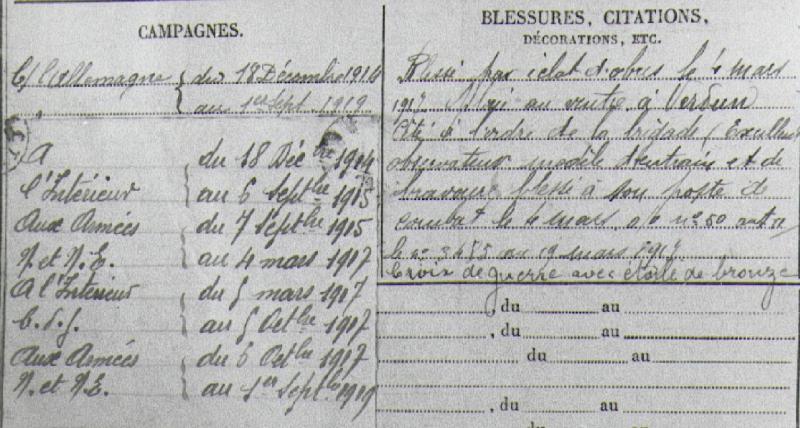 CAMPAGNES.
C/ l'Allemagne { du 18 Décembre 1914
au 1er Sept. 1919
A du 18 Décbre 1914
l'Intérieur au 6 Septbre 1915
Aux Armées du 7 Septbre 1915
N. et N.E. au 4 mars 1917
A l'Intérieur du 5 mars 1917
C.d.g. au 5 Octbre 1917
Aux Armées du 6 Octbre 1917
N. et N.E. au 1er Septbre 1919
BLESSURES, CITATIONS,
DÉCORATIONS, ETC.
Blessé par éclat d'obus le 4 mars
1917 au ventre à Verdun
Cité à l'ordre de la brigade (Excellent
observateur modèle d'entrain et de
bravoure blessé à son poste de
combat le 4 mars. o/o n° 50
le n° 3455 au 19 mars 1917
Croix de guerre avec étoile de bronze
, du au
, du au
du au
, du au
du